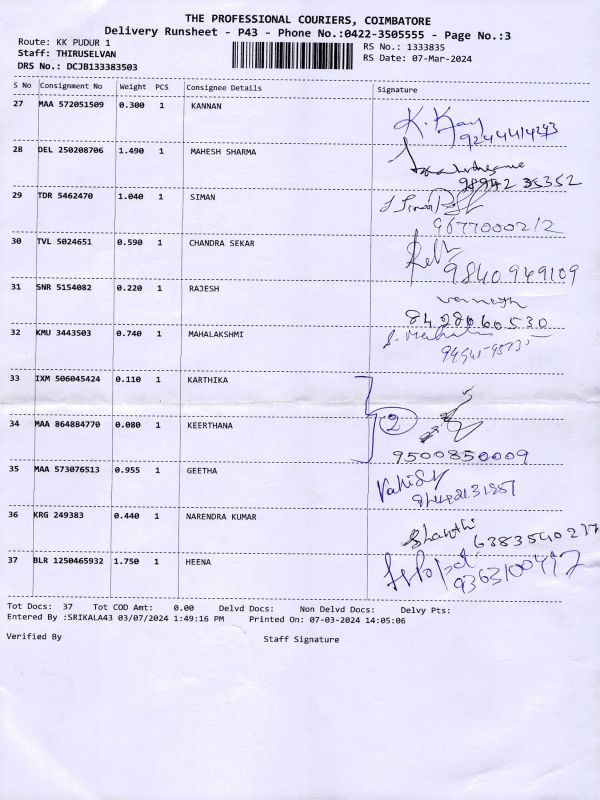 THE PROFESSIONAL COURIERS, COIMBATORE
Delivery Runsheet - P43 - Phone No.:0422-3505555 - Page No.:3
Route: KK PUDUR 1
RS No.: 1333835
Staff: THIRUSELVAN
RS Date: 07-Mar-2024
DRS No.: DCJB133383503
S No Consignment No Weight PCS Consignee Details Signature
27 MAA 572051509 0.300 1 KANNAN
K. Kay
9244414243
28 DEL 250208706 1.490 1 MAHESH SHARMA
98942 35352
29 TDR 5462470 1.040 1 SIMAN
9677000212
30 TVL 5024651 0.590 1 CHANDRA SEKAR
9840949109
31 SNR 5154082 0.220 1 RAJESH
8428060530
32 KMU 3443503 0.740 1 MAHALAKSHMI
33 IXM 506045424 0.110 1 KARTHIKA
34 MAA 864884770 0.080 1 KEERTHANA
2
9500850009
35 MAA 573076513 0.955 1 GEETHA
36 KRG 249383 0.440 1 NARENDRA KUMAR
Shanthi
6383540217
37 BLR 1250465932 1.750 1 HEENA
Tot Docs: 37 Tot COD Amt: 0.00 Delvd Docs: Non Delvd Docs: Delvy Pts:
Entered By :SRIKALA43 03/07/2024 1:49:16 PM Printed On: 07-03-2024 14:05:06
Verified By Staff Signature